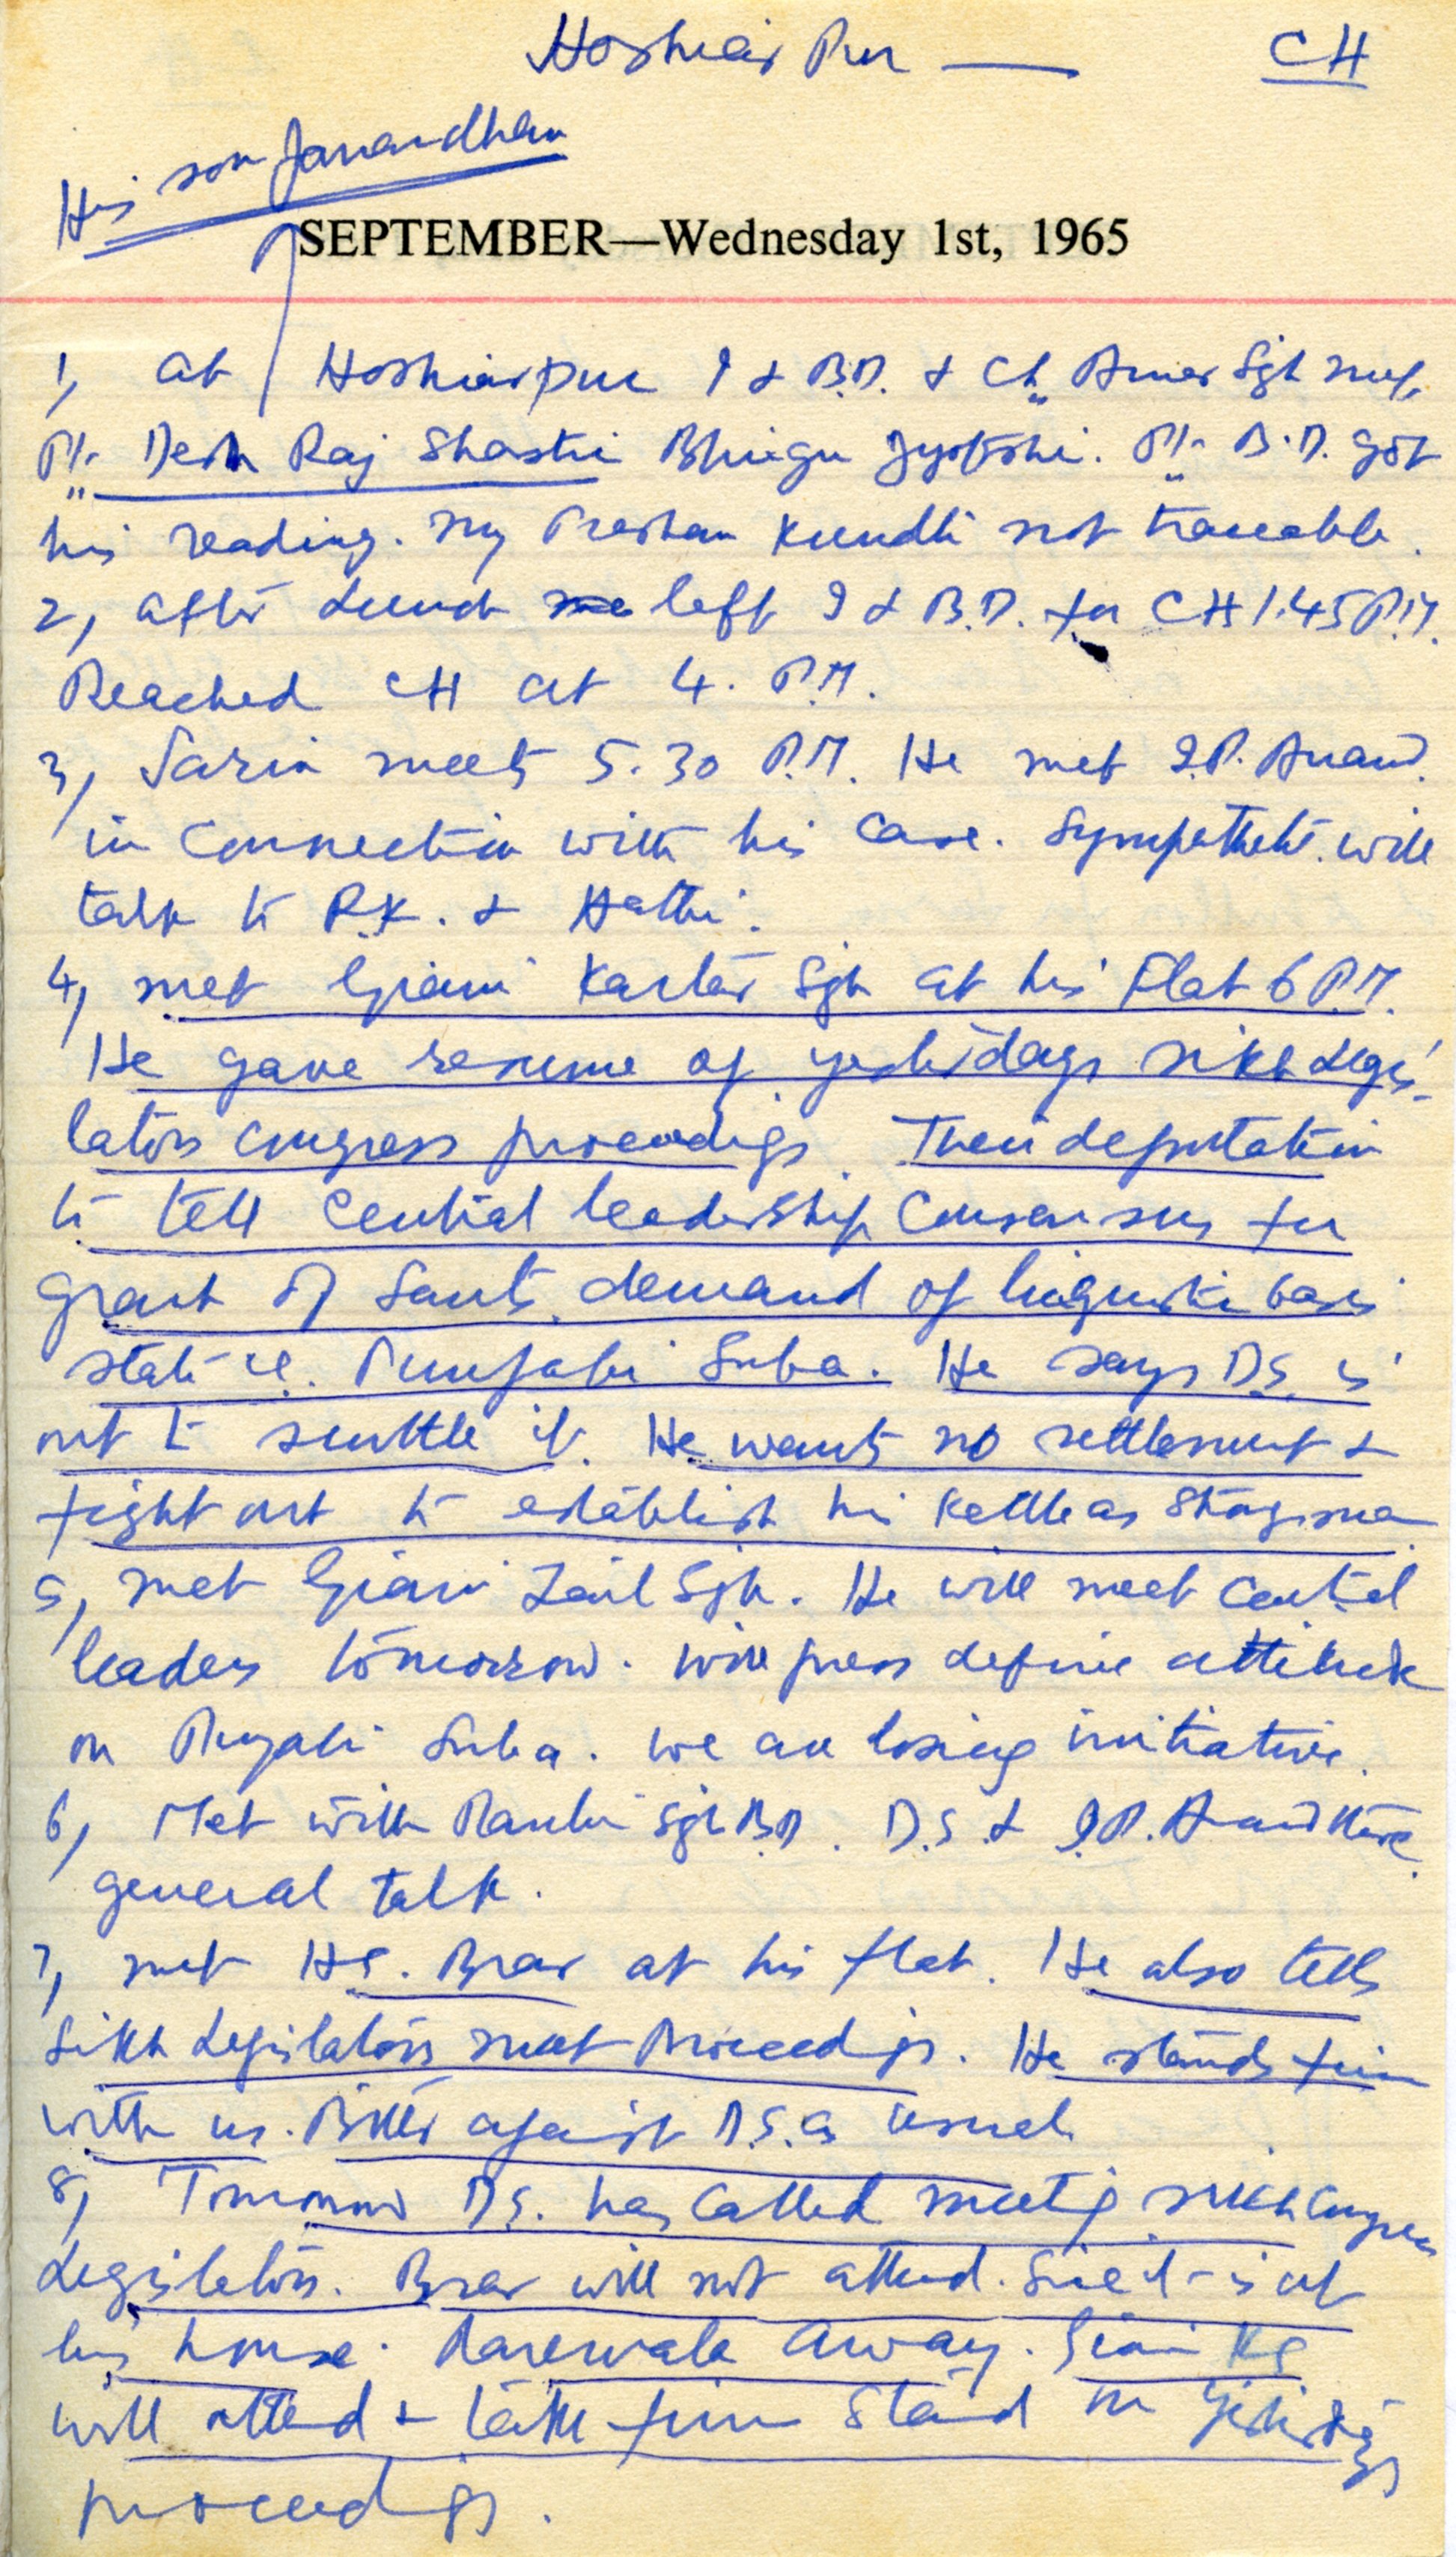 Hoshiar Pur — CH
His son Janardhan
SEPTEMBER—Wednesday 1st, 1965
1, at Hoshiarpur I & B.D. & Ch. Amar Sgh meet
Pt. Desh Raj Shastri Bhrigu Jyotshi. Pt. B.D. got
his reading. My Prashan Kundli not traceable.
2, after Lunch left I & B.D. for CH 1.45 P.M.
Reached CH at 4. P.M.
3, Sarin meets 5.30 P.M. He met I.P. Anand.
in Connection with his case. Sympathetic. will
talk to R.K. & Hathi.
4, met Giani Kartar Sgh at his Flat 6 P.M.
He gave resume of yesterdays Sikh Legis-
lators Congress proceedigs. Their deputation
to tell Central leadership Consensus for
grant of Sants demand of linguistic basis
state ie. Punjabi Suba. He says D.S. is
out to scuttle it. He wants no settlement &
fight out to establish his as Strogman
5, met Giani Zail Sgh. He will meet Central
leaders tomorrow. will press define attitude
on Punjabi Suba. we are losing initiative.
6, Met with Ranbir Sgh B.D. D.S. & I.P. Anand there
general talk.
7, met HS. Brar at his flat. He also tells
Sikh Legislators meet Proceedigs. He stands firm
with us. Bitter against D.S. as usual.
8, Tomorrow D.S. has Called meetig Sikh Congress
Legislators. Brar will not attend. Since it is at
his house. Rarewala away. Giani KS
will attend & take firm Stand on yesterdays
proceedigs.